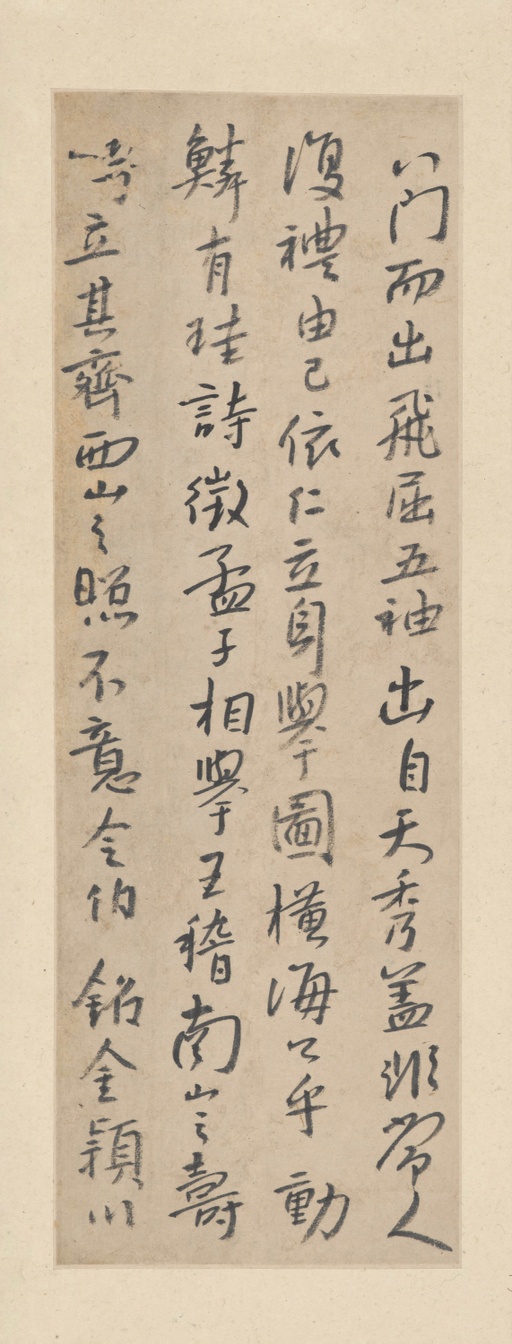 八門而出飛屈五袖出自天秀蓋非常人
復禮由己依仁立身學圖橫海公乎動
鱗有珪詩徵孟子相學王稽南山之壽
考立其齊西山之照不意令伯銘金潁川